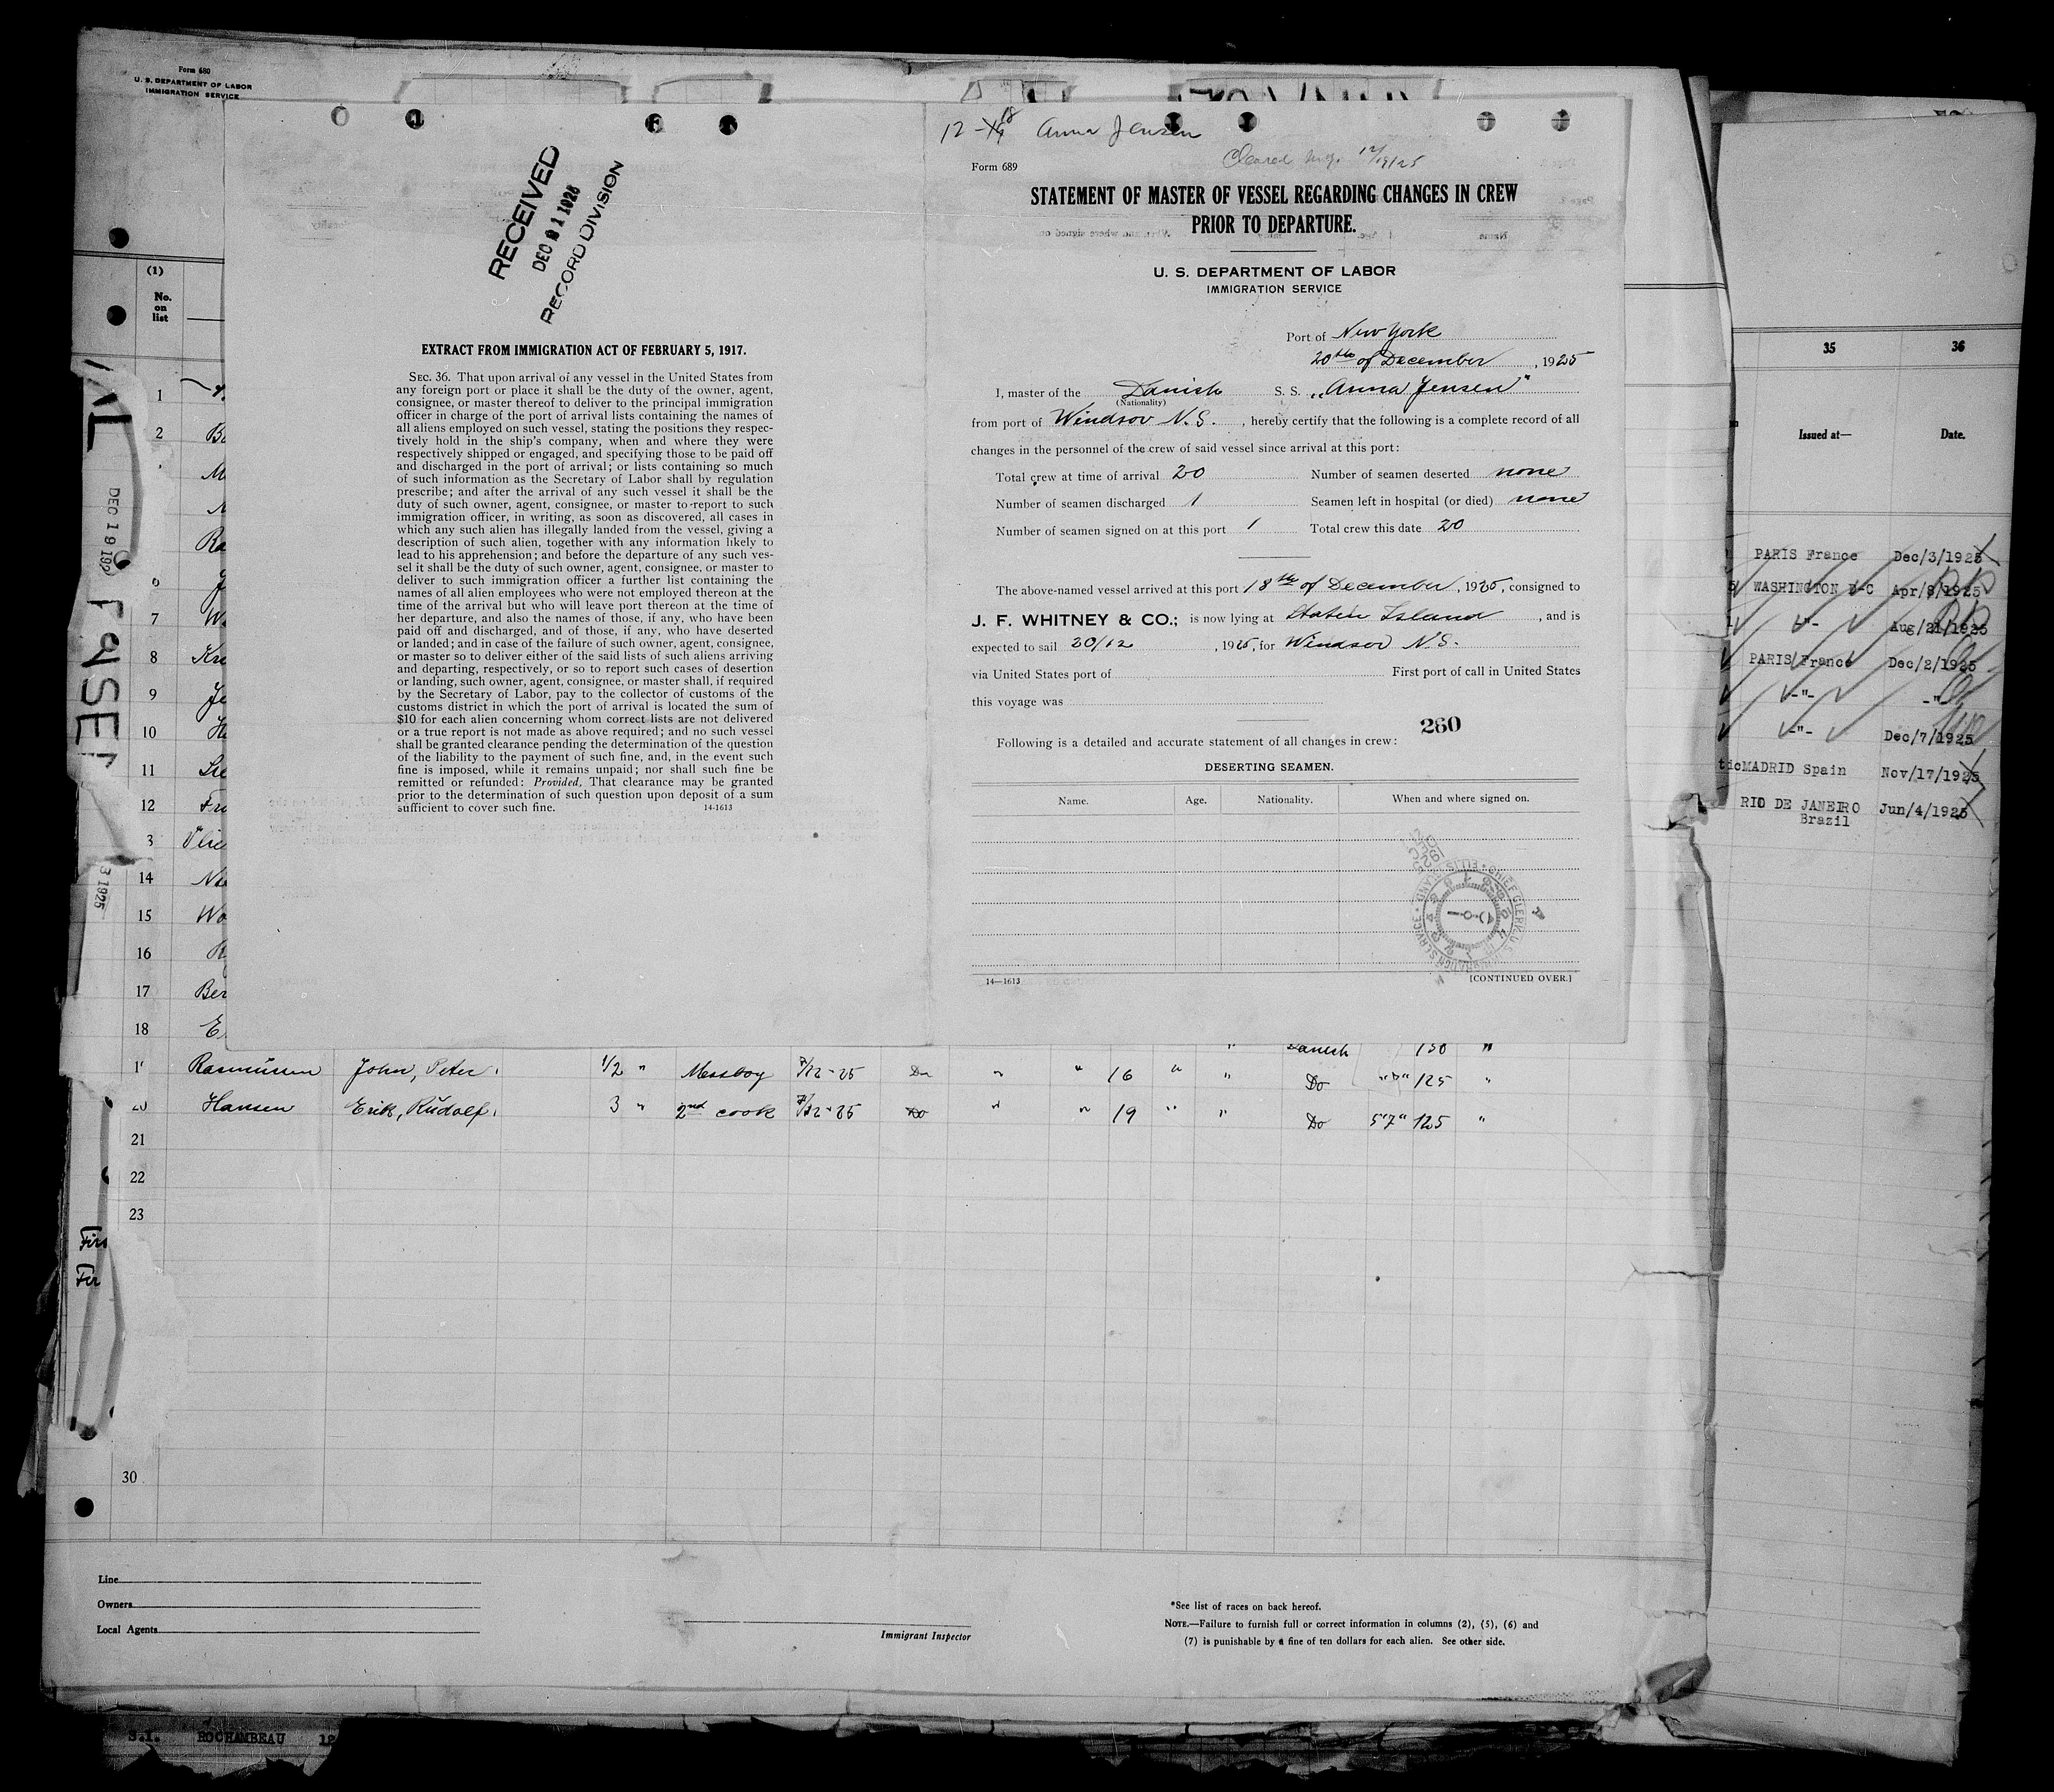 Form 680
U. S. DEPARTMENT OF LABOR
IMMIGRATION SERVICE
(1)
No.
on
list
1
2
6
7
8
9
10
11
12
3
14
15
16
17
18
DEC 19
3 1925
RECEIVED
DEC 21 1925
RECORD DIVISION
EXTRACT FROM IMMIGRATION ACT OF FEBRUARY 5, 1917.
SEC. 36. That upon arrival of any vessel in the United States from
any foreign port or place it shall be the duty of the owner, agent,
consignee, or master thereof to deliver to the principal immigration
officer in charge of the port of arrival lists containing the names of
all aliens employed on such vessel, stating the positions they respec-
tively hold in the ship's company, when and where they were
respectively shipped or engaged, and specifying those to be paid off
and discharged in the port of arrival; or lists containing so much
of such information as the Secretary of Labor shall by regulation
prescribe; and after the arrival of any such vessel it shall be the
duty of such owner, agent, consignee, or master to report to such
immigration officer, in writing, as soon as discovered, all cases in
which any such alien has illegally landed from the vessel, giving a
description of such alien, together with any information likely to
lead to his apprehension; and before the departure of any such ves-
sel it shall be the duty of such owner, agent, consignee, or master to
deliver to such immigration officer a further list containing the
names of all alien employees who were not employed thereon at the
time of the arrival but who will leave port thereon at the time of
her departure, and also the names of those, if any, who have been
paid off and discharged, and of those, if any, who have deserted
or landed; and in case of the failure of such owner, agent, consignee,
or master so to deliver either of the said lists of such aliens arriving
and departing, respectively, or so to report such cases of desertion
or landing, such owner, agent, consignee, or master shall, if required
by the Secretary of Labor, pay to the collector of customs of the
customs district in which the port of arrival is located the sum of
$10 for each alien concerning whom correct lists are not delivered
or a true report is not made as above required; and no such vessel
shall be granted clearance pending the determination of the question
of the liability to the payment of such fine, and, in the event such
fine is imposed, while it remains unpaid; nor shall such fine be
remitted or refunded: Provided, That clearance may be granted
prior to the determination of such question upon deposit of a sum
sufficient to cover such fine. 14-1613
12-18 Anna Jensen
Cleared 12/19/25
Form 689
STATEMENT OF MASTER OF VESSEL REGARDING CHANGES IN CREW
PRIOR TO DEPARTURE.
U. S. DEPARTMENT OF LABOR
IMMIGRATION SERVICE
Port of New York
20th of December, 1925
I, master of the Danish S. S. „Anna Jensen"
(Nationality)
from port of Windsor N.S., hereby certify that the following is a complete record of all
changes in the personnel of the crew of said vessel since arrival at this port:
Total crew at time of arrival 20 Number of seamen deserted none
Number of seamen discharged 1 Seamen left in hospital (or died) none
Number of seamen signed on at this port 1 Total crew this date 20
The above-named vessel arrived at this port 18th of December, 1925, consigned to
J. F. WHITNEY & CO.; is now lying at Staten Island, and is
expected to sail 20/12, 1925, for Windsor N.S.
via United States port of First port of call in United States
this voyage was
260
Following is a detailed and accurate statement of all changes in crew:
DESERTING SEAMEN.
Name. Age. Nationality. When and where signed on.
14—1613 [CONTINUED OVER.]
35 36
Issued at— Date.
PARIS France Dec/3/1925
WASHINGTON D-C Apr/8/1925
-"- Aug/21/1925
PARIS France Dec/2/1925
-"- -"-
-"- Dec/7/1925
MADRID Spain Nov/17/1925
RIO DE JANEIRO Jun/4/1925
Brazil
Danish 130 "
Rasmussen John, Peter 1/2 " Messboy 7/12-25 Do " " 16 " " Do 125 "
20 Hansen Erik, Rudolf 3 " 2nd cook 7/12-25 Do " " 19 " " Do 5"7" 125 "
21
22
23
30
Line
Owners
Local Agents
Immigrant Inspector
*See list of races on back hereof.
NOTE.—Failure to furnish full or correct information in columns (2), (5), (6) and
(7) is punishable by a fine of ten dollars for each alien. See other side.
S.I. ROCHAMBEAU 12